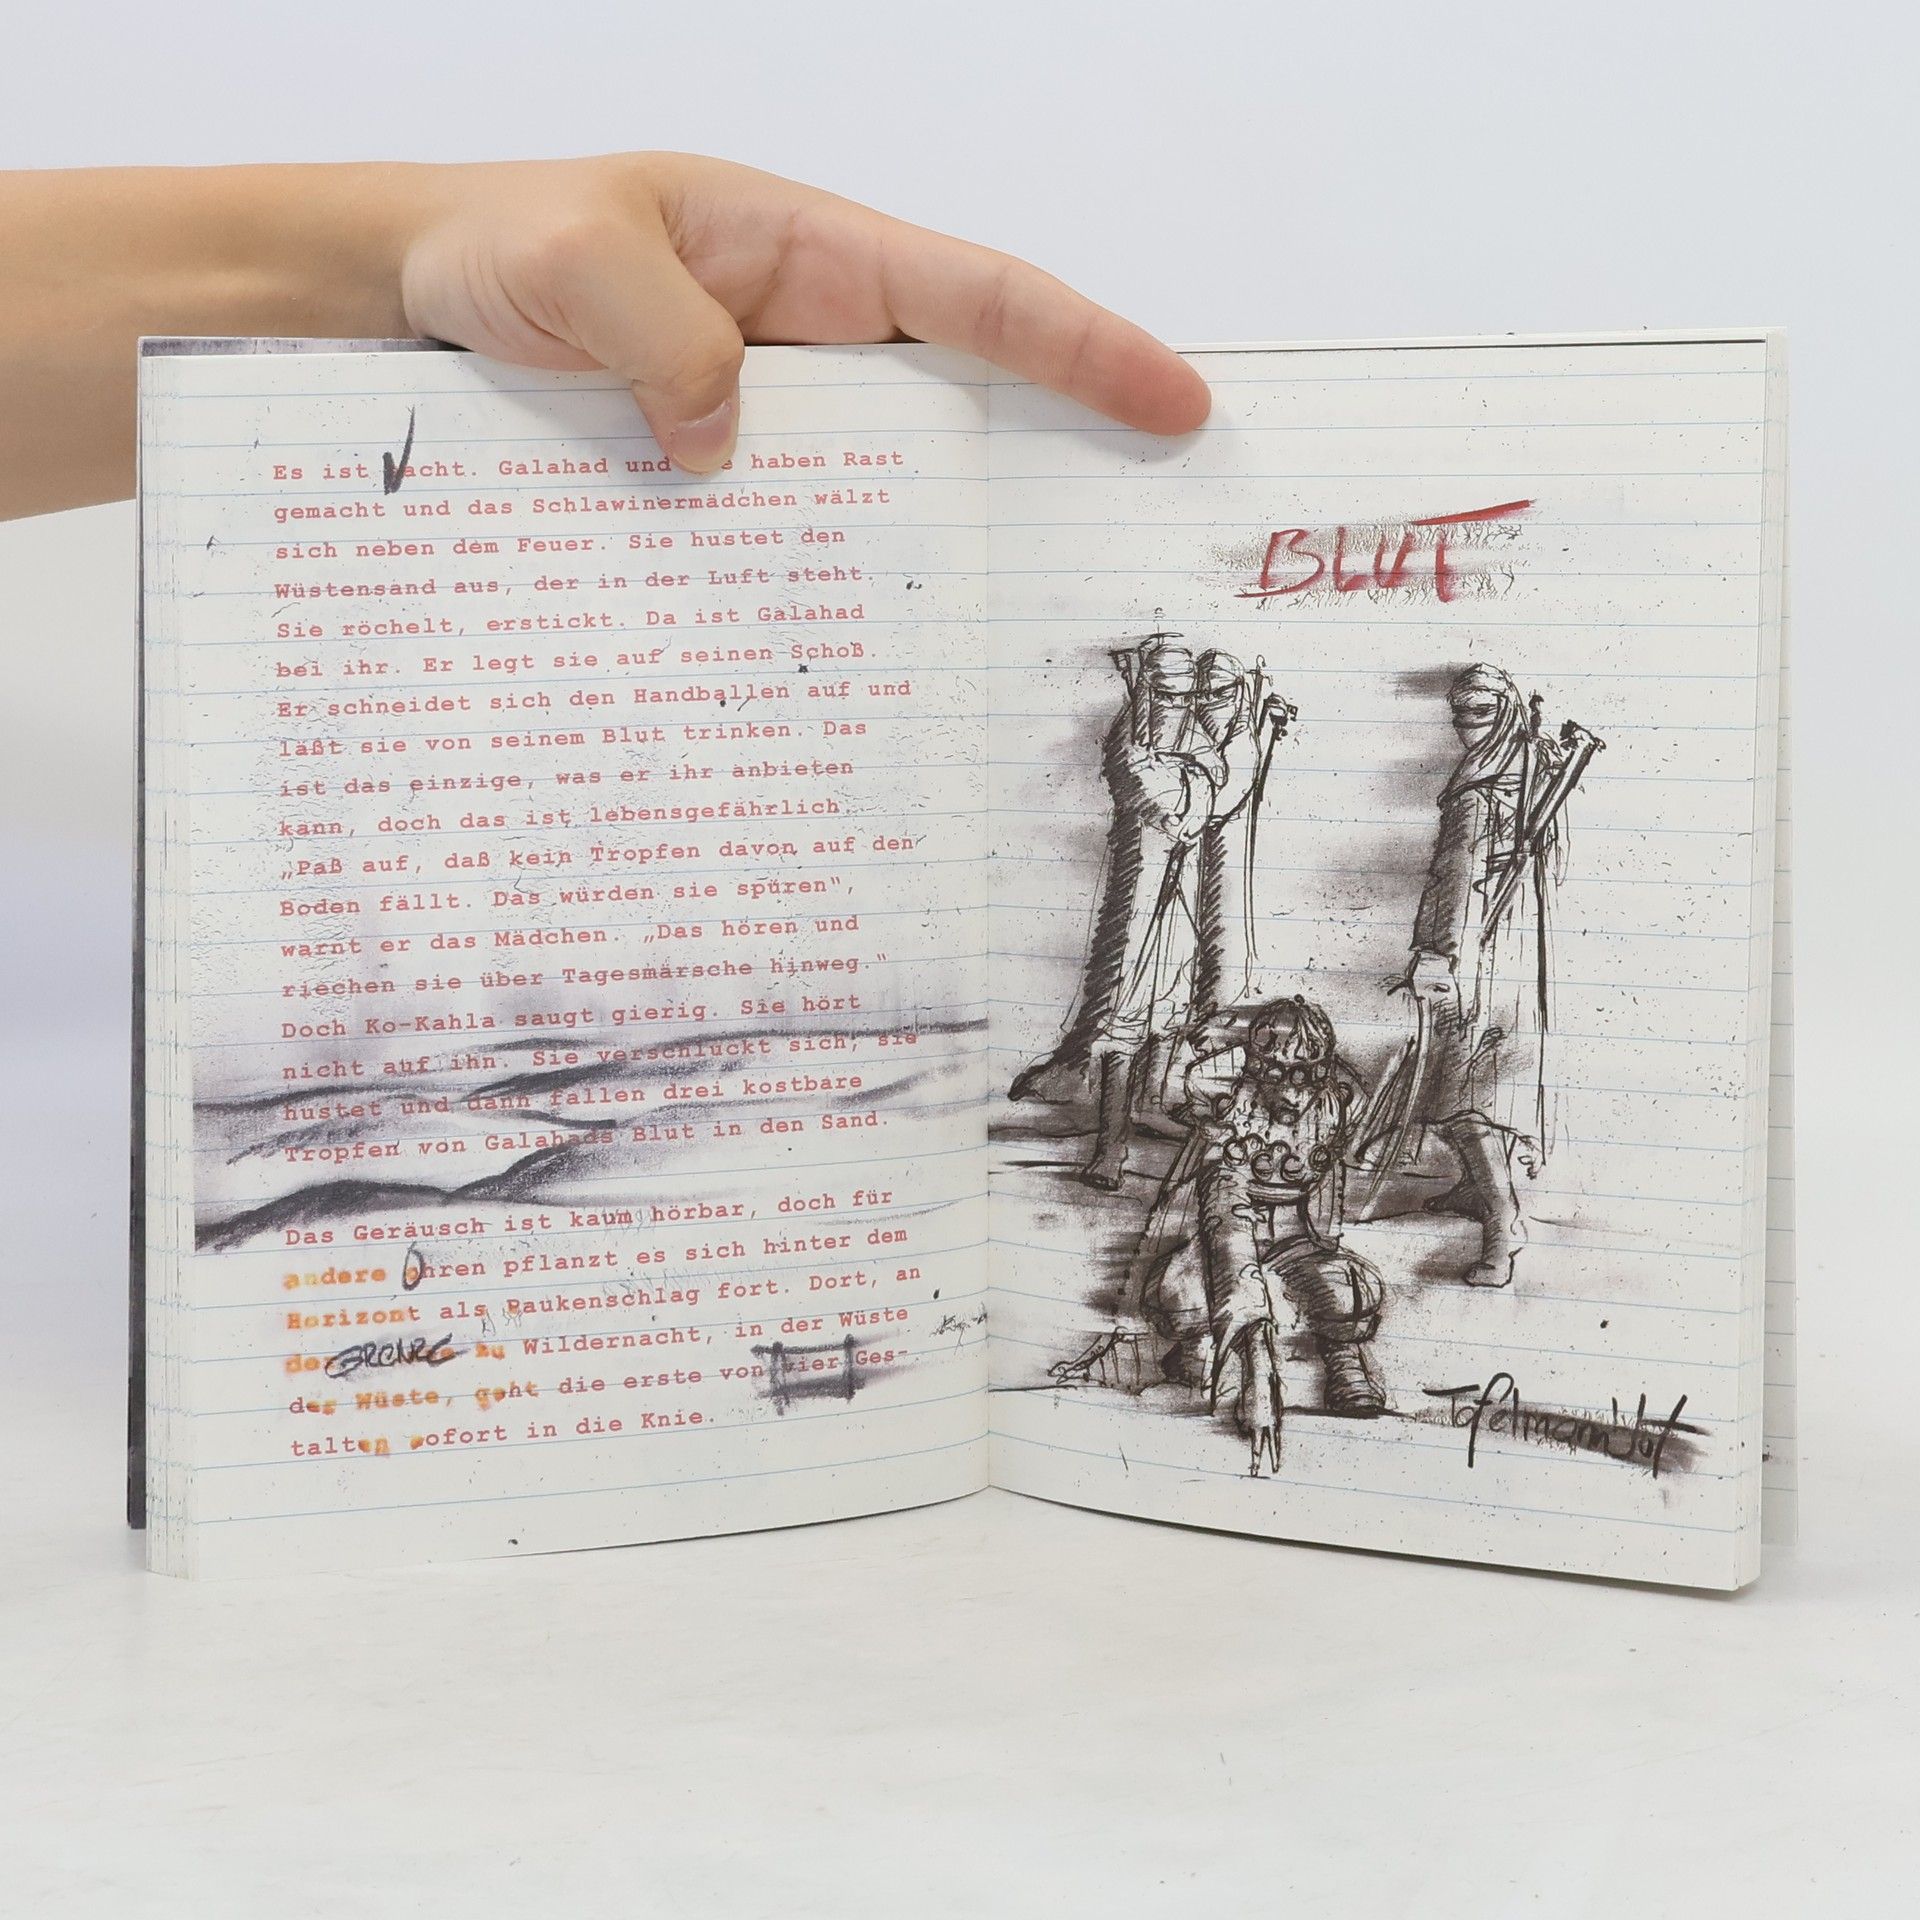 Es ist Nacht. Galahad und haben Rast
gemacht und das Schlawinermädchen wälzt
sich neben dem Feuer. Sie hustet den
Wüstensand aus, der in der Luft steht.
Sie röchelt, erstickt. Da ist Galahad
bei ihr. Er legt sie auf seinen Schoß.
Er schneidet sich den Handballen auf und
läßt sie von seinem Blut trinken. Das
ist das einzige, was er ihr anbieten
kann, doch das ist lebensgefährlich.
„Paß auf, daß kein Tropfen davon auf den
Boden fällt. Das würden sie spüren",
warnt er das Mädchen. „Das hören und
riechen sie über Tagesmärsche hinweg."
Doch Ko-Kahla saugt gierig. Sie hört
nicht auf ihn. Sie verschluckt sich, sie
hustet und dann fallen drei kostbare
Tropfen von Galahads Blut in den Sand.
Das Geräusch ist kaum hörbar, doch für
andere Ohren pflanzt es sich hinter dem
Horizont als Paukenschlag fort. Dort, an
der GRENZE zu Wildernacht, in der Wüste
der Wüste, geht die erste von vier Ges-
talten sofort in die Knie.
BLUT